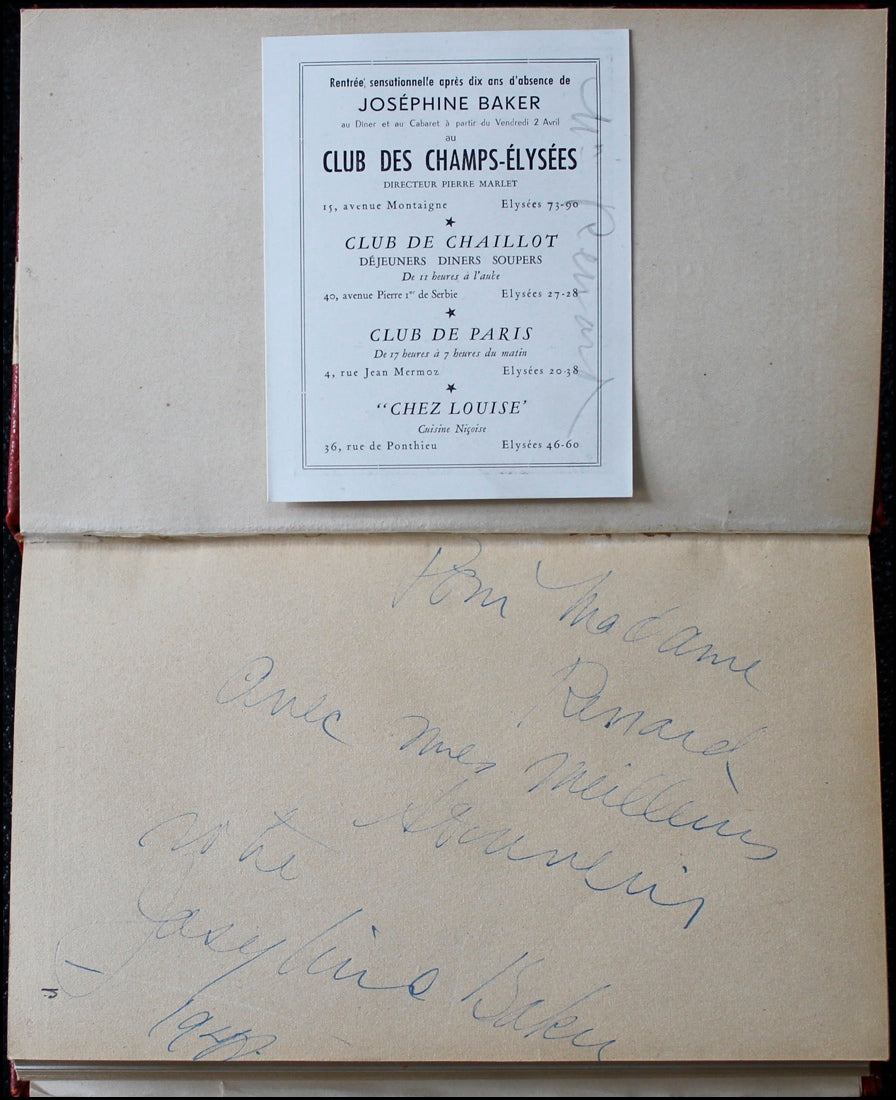 Rentrée, sensationnelle après dix ans d'absence de
JOSÉPHINE BAKER
au Diner et au Cabaret à partir du Vendredi 2 Avril
au
CLUB DES CHAMPS-ÉLYSÉES
DIRECTEUR PIERRE MARLET
15, avenue Montaigne Elysées 73-90
CLUB DE CHAILLOT
DÉJEUNERS DINERS SOUPERS
De 11 heures à l'aube
40, avenue Pierre 1er de Serbie Elysées 27-28
CLUB DE PARIS
De 17 heures à 7 heures du matin
4, rue Jean Mermoz Elysées 20-38
"CHEZ LOUISE'
Cuisine Niçoise
36, rue de Ponthieu Elysées 46-60
Renard
Pour Madame
Renard
avec mes meilleurs
souvenirs
votre
Josephine Baker
1948